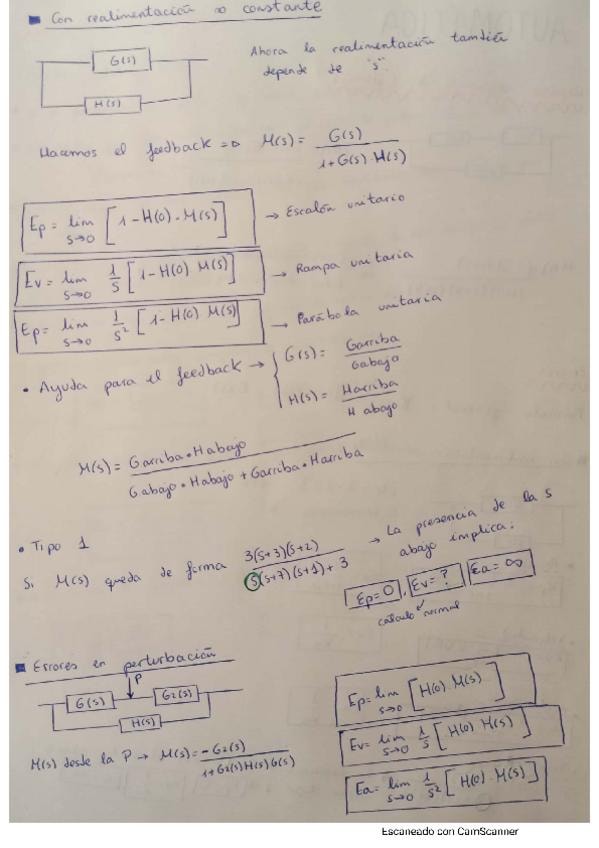 Con realimentación no constante
G(s)
H(s)
Ahora la realimentación también
depende de "s"
Hacemos el feedback => M(s) = G(s) / 1+G(s)·H(s)
Ep = lim s→0 [1 - H(0)·M(s)] → Escalón unitario
Ev = lim s→0 1/s [1 - H(0) M(s)] → Rampa unitaria
Ep = lim s→0 1/s² [1 - H(0) M(s)] → Parábola unitaria
• Ayuda para el feedback → { G(s) = Garriba / Gabajo
H(s) = Harriba / H abajo
M(s) = Garriba • Habajo / Gabajo • Habajo + Garriba • Harriba
• Tipo 1
Si M(s) queda de forma 3(s+3)(s+2) / s(s+7)(s+1)+3 → La presencia de la s
abajo implica:
Ep=0, Ev=?, Ea=∞
cálculo normal
Errores en perturbación
P
G(s)
G2(s)
H(s)
M(s) desde la P → M(s) = -G2(s) / 1+G2(s)H(s)G(s)
Ep = lim s→0 [H(0)·M(s)]
Ev = lim s→0 1/s [H(0) M(s)]
Ea = lim s→0 1/s² [H(0)·M(s)]
Escaneado con CamScanner